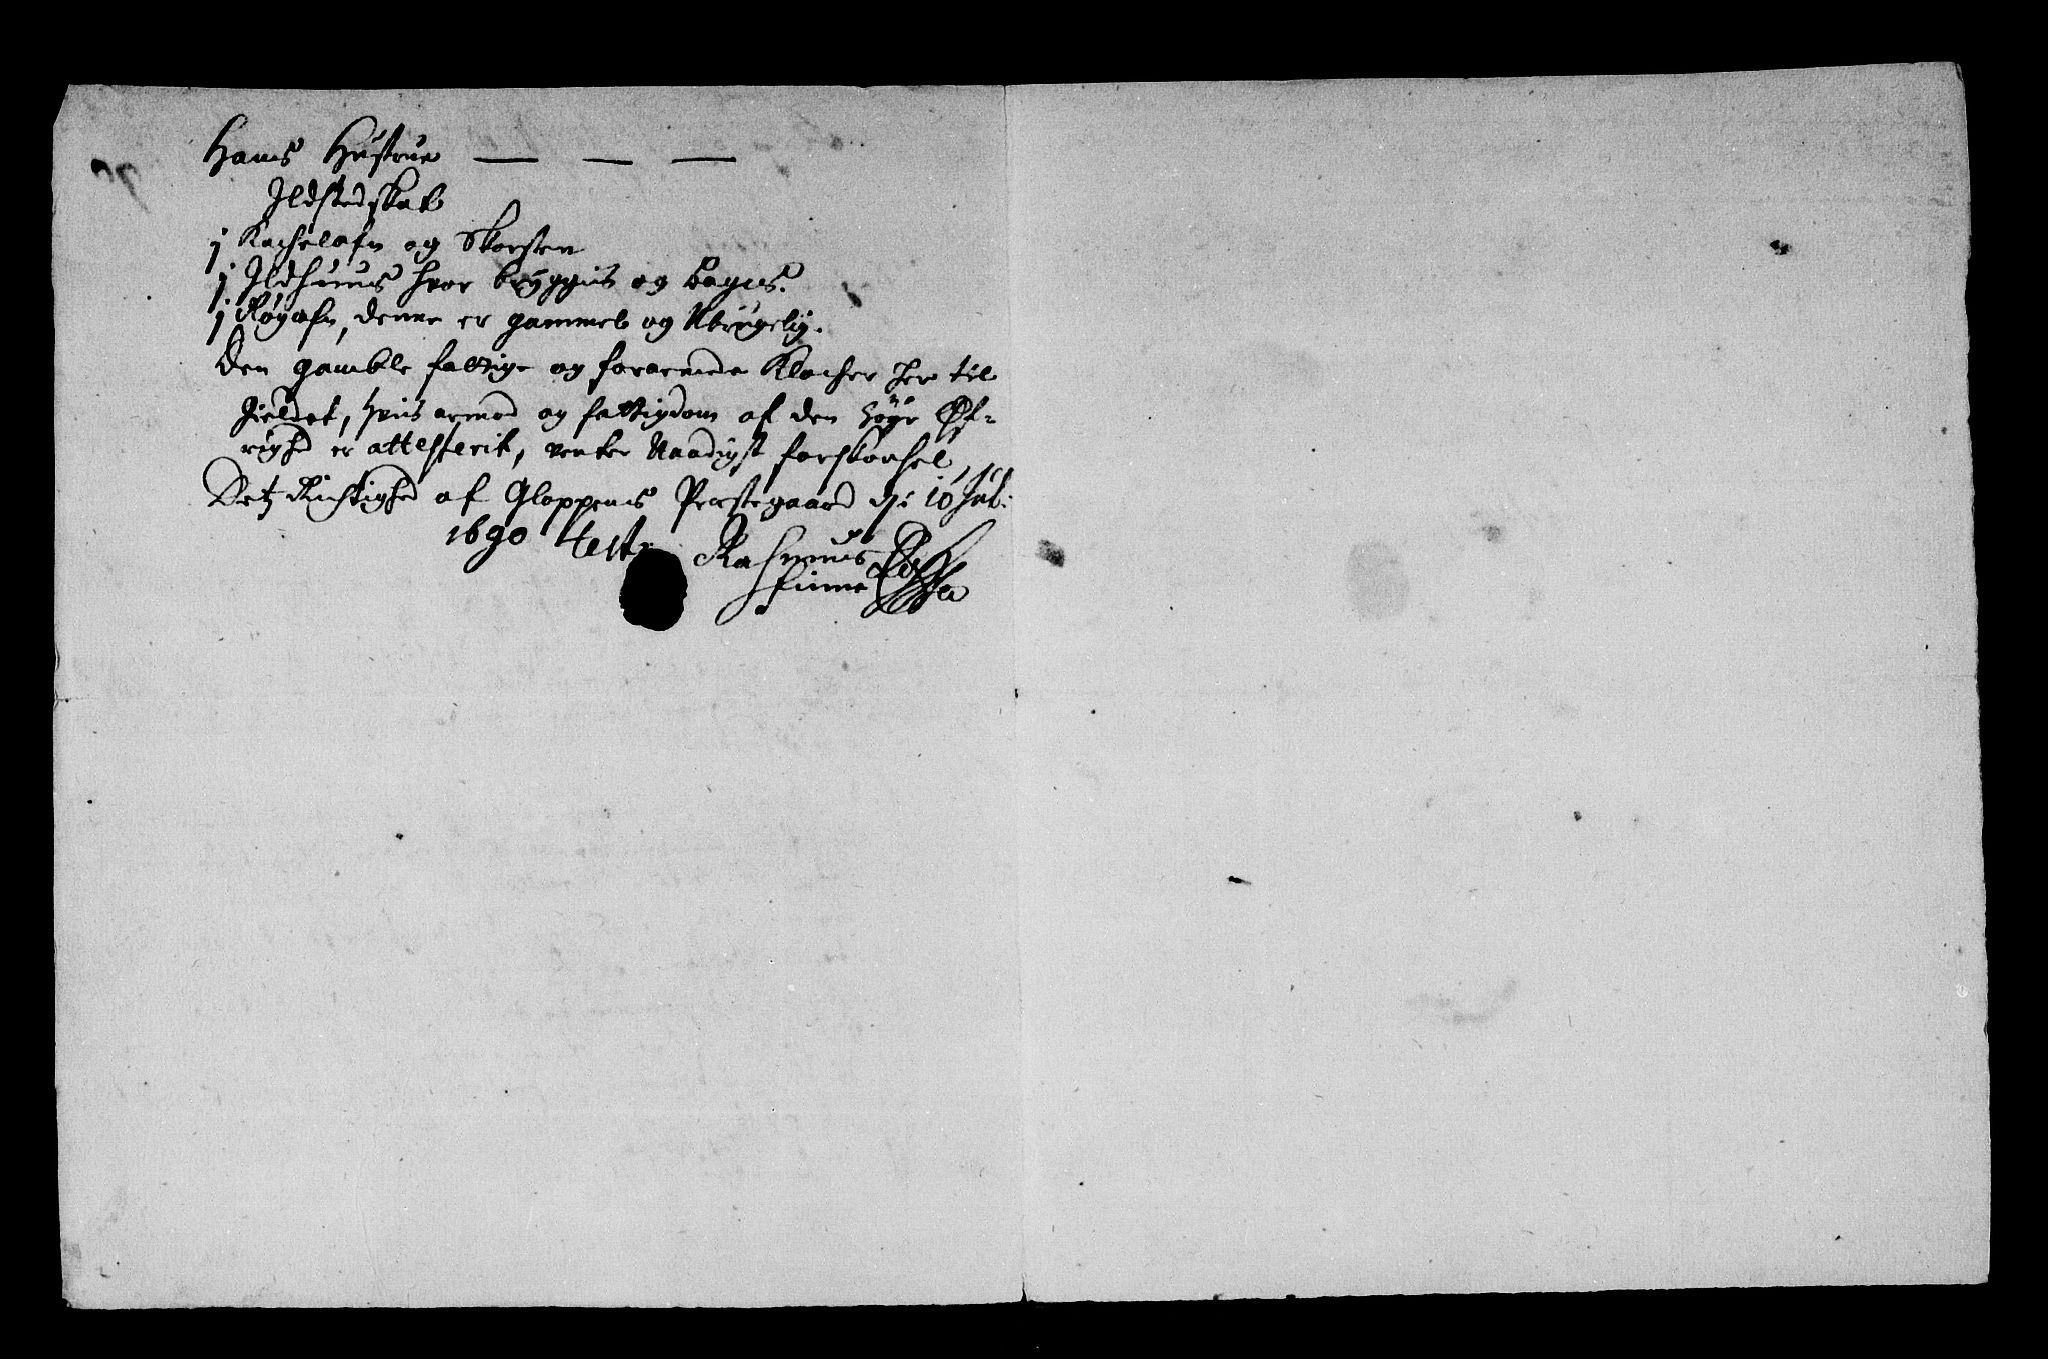 Hans Hustrue — — —
Ildstedskat
j Kachelofn og Skorsten
j Ildhuus hvor bryggis og bagis.
j Røgofn, denne er gammel og Ubrugelig.
Den gamble fattige og forarmede Klocher her til
Gieldet, hvis armod og fattigdom af den høye Øf-
righd er attesterit, venter Naadigst forskonsel,
Dets Richtighed af Gloppens Præstegaard dj: 10 Jul:
1690 Test:
Rasmus
Finne